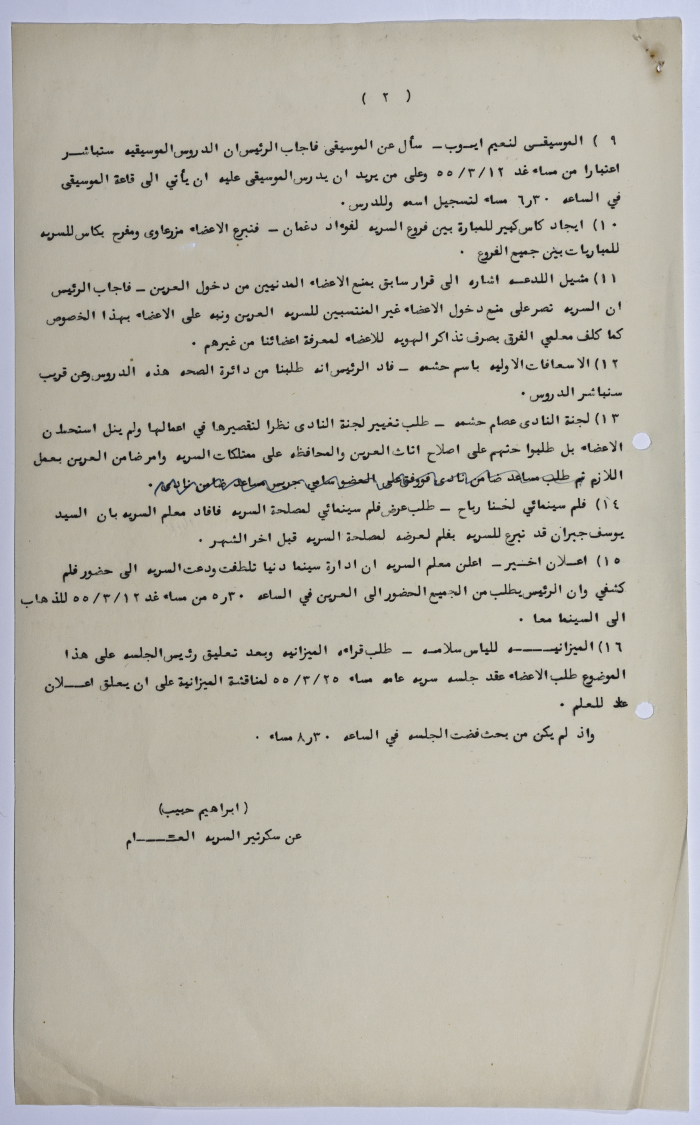 ( ٢ )
٩ ) الموسيقـــى لنعيم ايـوب ــ سأل عن الموسيقى فاجاب الرئيس ان الدروس الموسيقيه ستباشـــر
اعتبارا من مساء غد ٥٥/٣/١٢ وعلى من يريد ان يدرس الموسيقى عليه ان يأتي الى قاعة الموسيقى
في الساعه ٦ر٣٠ مساء لتسجيل اسمه وللدرس ٠
١٠) ايجاد كاس كبير للمبارة بين فروع السريه لفواد دغمان ــ فتبرع الاعضاء مزرعاوى ومفرح بكاس للسريه
للمباريات بين جميع الفروع ٠
١١) مشيل اللدعـه اشاره الى قرار سابق بمنع الاعضاء المدنيين من دخول العرين ــ فاجاب الرئيس
ان السريه تصر على منع دخول الاعضاء غير المنتسبين للسريه العرين ونبه على الاعضاء بهذا الخصوص
كما كلف معلمي الفرق بصرف تذاكر الهويه للاعضاء لمعرفة اعضائنا من غيرهم ٠
١٢) الاسعافات الاوليه باسم حشمه ــ فاد الرئيس انه طلبنا من دائرة الصحه هذه الدروس وعن قريب
سنباشر الدروس ٠
١٣) لجنة النادى عصام حشمه ــ طلب تغيير لجنة النادى نظرا لتقصيرها في اعمالها ولم ينل استحسان
الاعضاء بل طلبوا حثهم على اصلاح اثاث العرين والمحافظه على ممتلكات السريه وامر ضامن العرين بعمل
اللازم ثم طلب مساعد ضامن نادى فووفق على العضو سامي جريس مساعد ضامن نادى ٠
١٤) فلم سينمائي لحنا رباح ــ طلب عرض فلم سينمائي لمصلحة السريه فافاد معلم السريه بان السيد
يوسف جبران قد تبرع للسريه بفلم لعرضه لمصلحة السريه قبل اخر الشهر ٠
١٥) اعـــلان اخـــير ــ اعلن معلم السريه ان ادارة سينما دنيا تلطفت ودعت السريه الى حضور فلم
كشفي وان الرئيس يطلب من الجميع الحضور الى العرين في الساعه ٥ر٣٠ من مساء غد ٥٥/٣/١٢ للذهاب
الى السينما معا ٠
١٦) الميزانيـــــــه للياس سلامـه ــ طلب قراءه الميزانيه وبعد تعليق رئيس الجلسه على هذا
الموضوع طلب الاعضاء عقد جلسه سريه عامه مساء ٥٥/٣/٢٥ لمناقشة الميزانية على ان يعلق اعـــلان
للعلم ٠
واذ لم يكن من بحث فضت الجلسه في الساعه ٨ر٣٠ مساء ٠
( ابراهيم حبيب)
عن سكرتير السريه العـــــــام